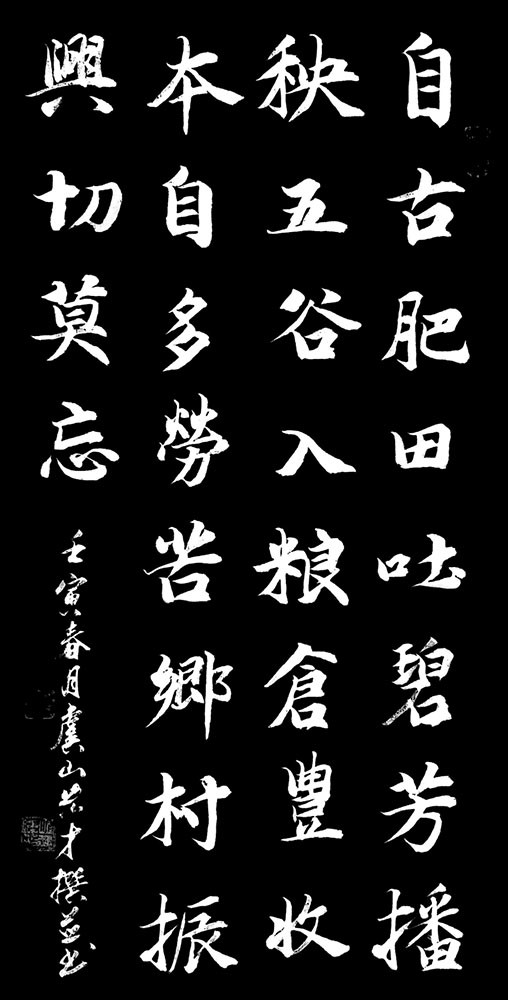 自古肥田吐碧芳播
秧五谷入粮倉豐收
本自多勞苦鄉村振
興切莫忘
壬寅春月虞山才撰並书